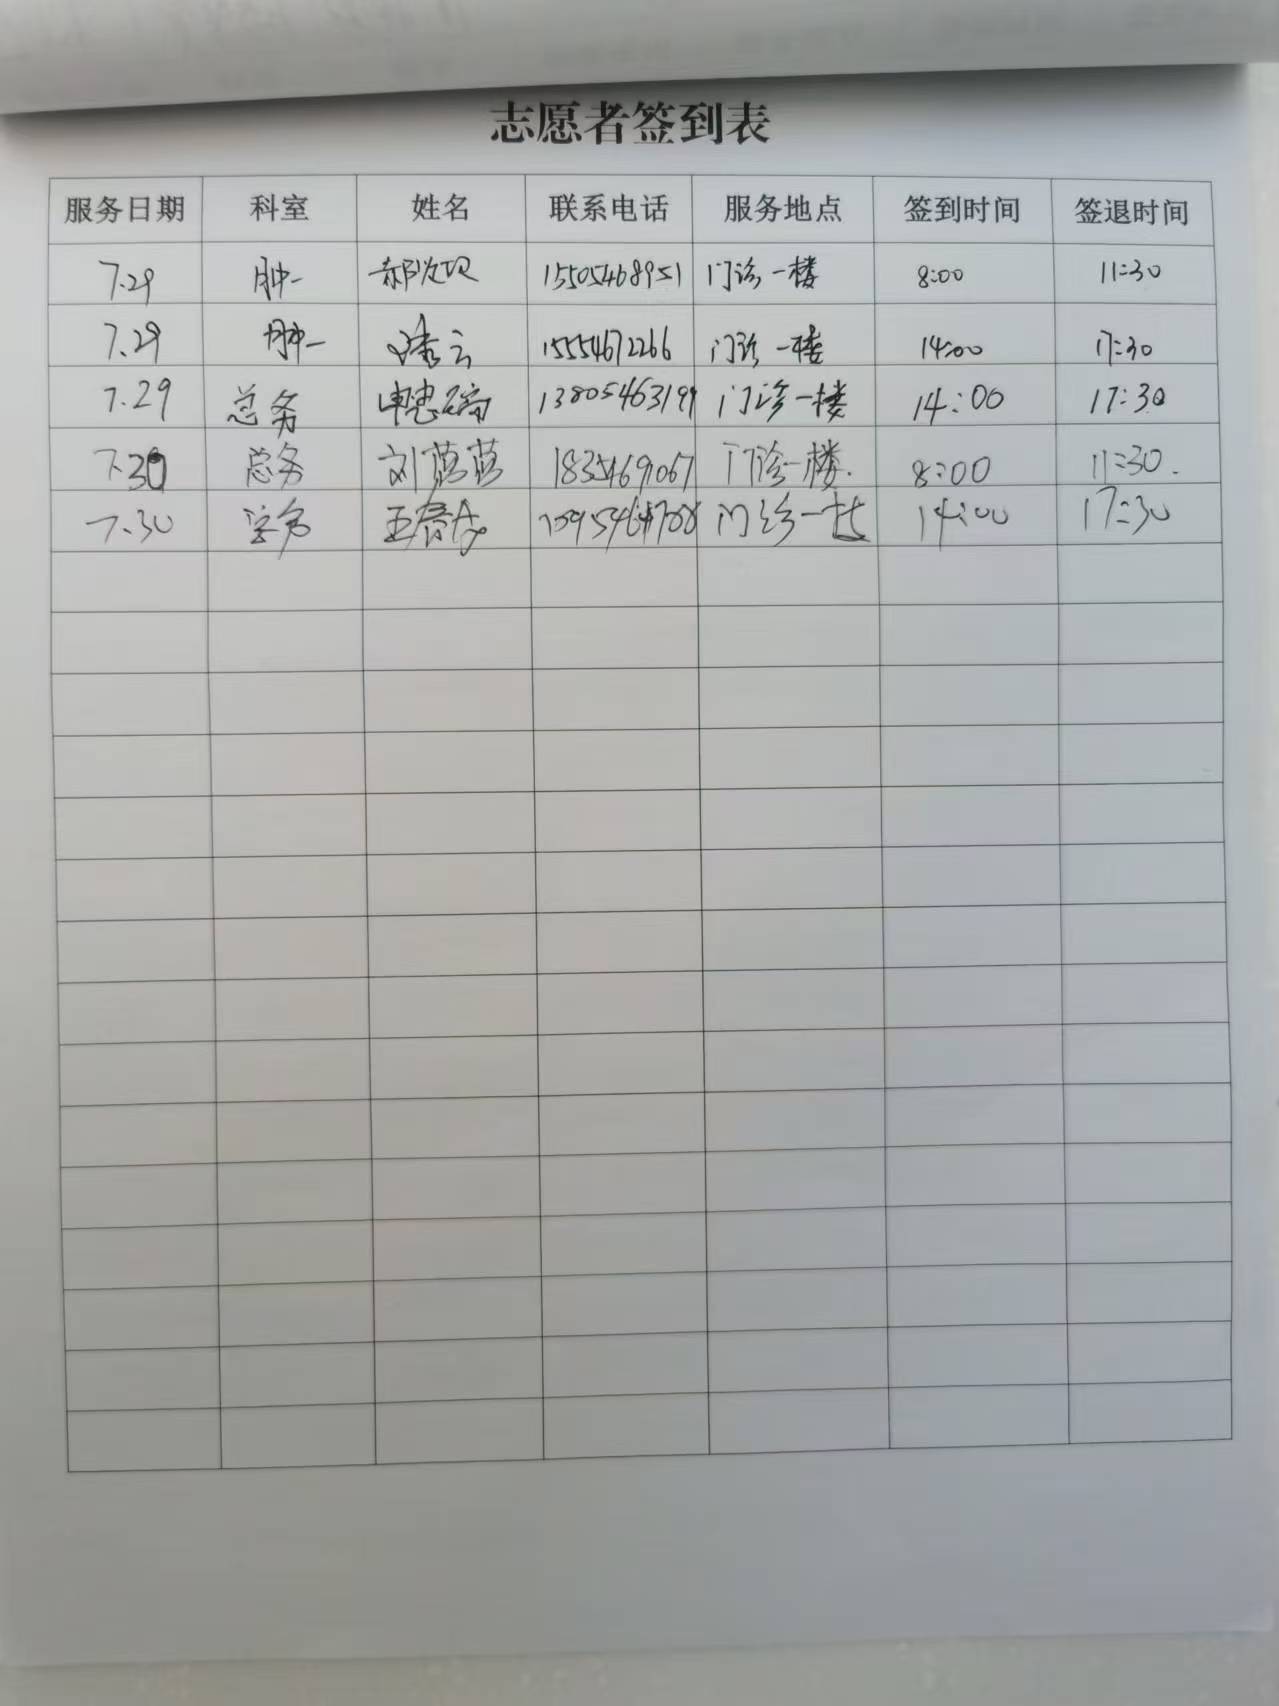 志愿者签到表
服务日期 科室 姓名 联系电话 服务地点 签到时间 签退时间
7.29 肿一 15505468951 门诊一楼 8:00 11:30
7.29 肿一 15554672266 门诊一楼 14:00 17:30
7.29 总务 门诊一楼 14:00 17:30
7.30 总务 刘蓓蓓 18354691067 门诊一楼. 8:00 11:30.
7.30 总务 门诊一楼 14:00 17:30